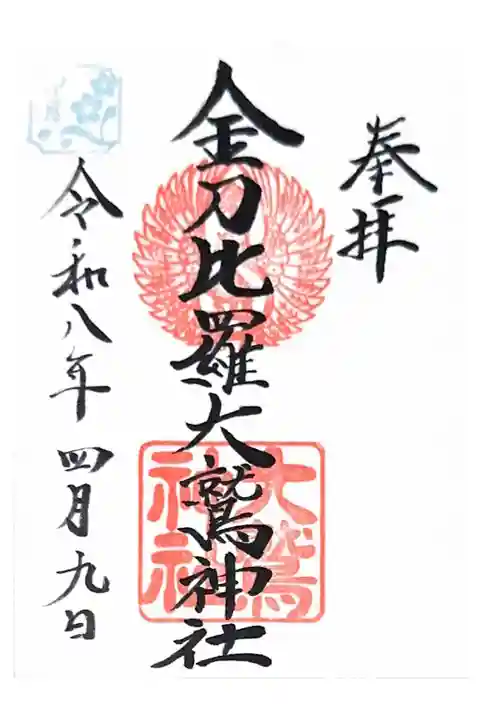 奉拝
金刀比羅大鷲神社
大鷲
神社
令和八年四月九日